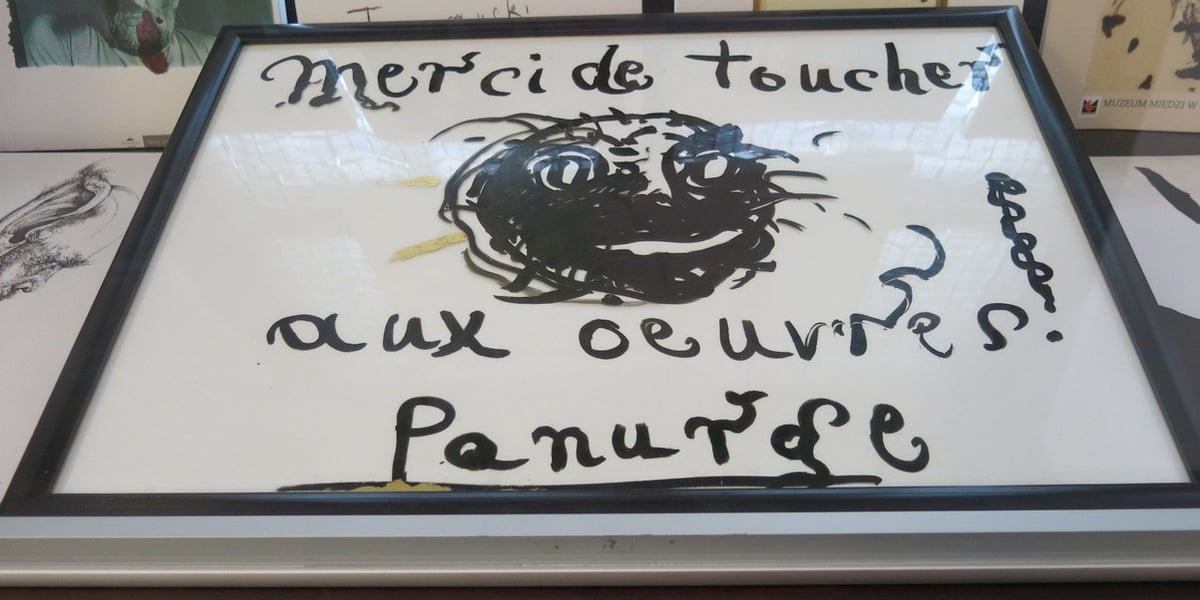 Merci de toucher
aux oeuvres.
Panurge
MUZEUM MIEDZI W